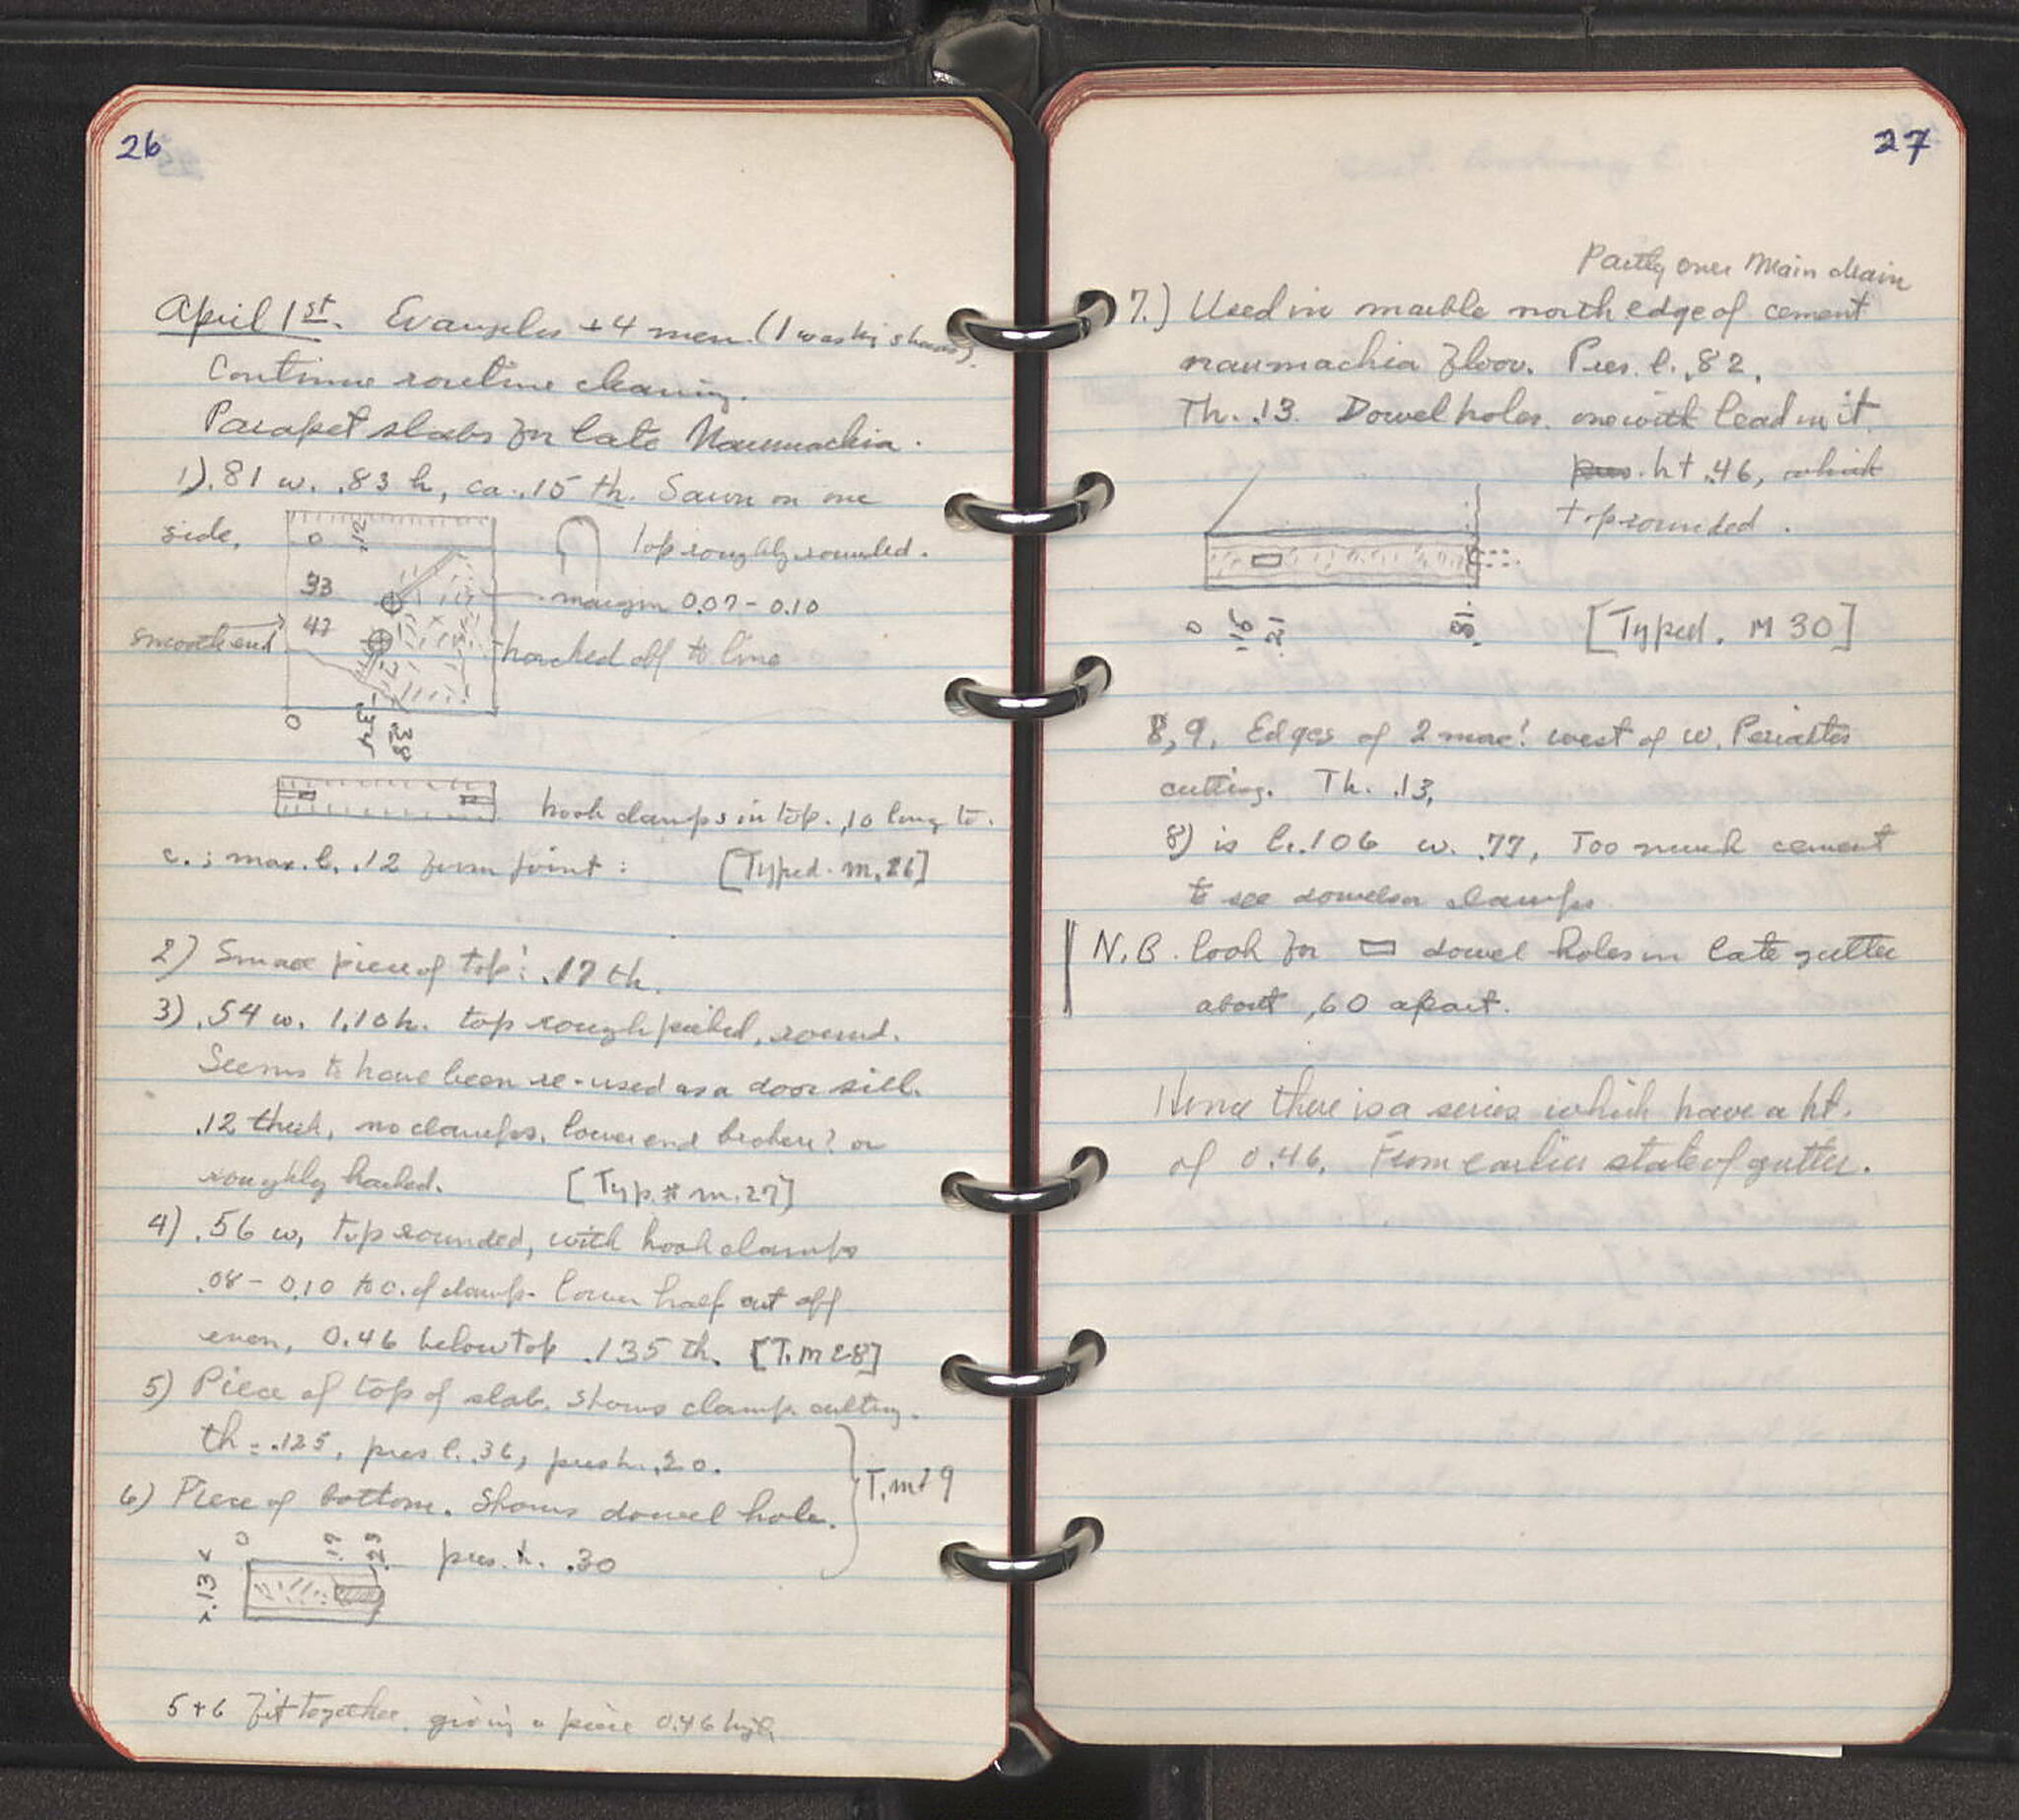 26
April 1st. Evangelos + 4 men. (1 washing sherds).
Continue routine cleaning.
Parapet slabs for late Naumachia.
1) .81 w. .83 h, ca. .15 th. Sawn on one
side,
0 .12
top roughly rounded.
33
margin 0.07 - 0.10
47
smooth end
hacked off to line
0 .38
hook clamps in top. .10 long to.
c.; max. l. .12 from joint: [Typed. m. 26]
2) Small piece of top: .17 th.
3) .54 w. 1.10 h. top rough picked, round.
Seems to have been re-used as a door sill.
.12 thick, no clamps, lower end broken? or
roughly hacked. [Typ. m. 27]
4) .56 w, top rounded, with hook clamps
.08 - 0.10 to c. of clamp. lower half cut off
even, 0.46 below top .135 th. [T. m 28]
5) Piece of top of slab, shows clamp cutting.
th = .125, pres l. .36, pres h. .20.
6) Piece of bottom. Shows dowel hole.
T. m 29
0 .19 .29
.13
pres. h. .30
5 + 6 fit together, giving a piece 0.46 high
27
Partly over Main drain
7.) Used in marble north edge of cement
naumachia floor. Pres. l. .82.
Th. .13. Dowel holes, one with lead in it.
pres. ht .46, which
top rounded.
0 .16 .21 .81
[Typed. M 30]
8, 9. Edges of 2 more! west of w. Periaktos
cutting. Th. .13,
8) is l. 1.06 w. .77, Too much cement
to see dowels or clamps
N.B. look for dowel holes in late gutter
about .60 apart.
Hence there is a series which have a ht.
of 0.46. From earlier state of gutter.